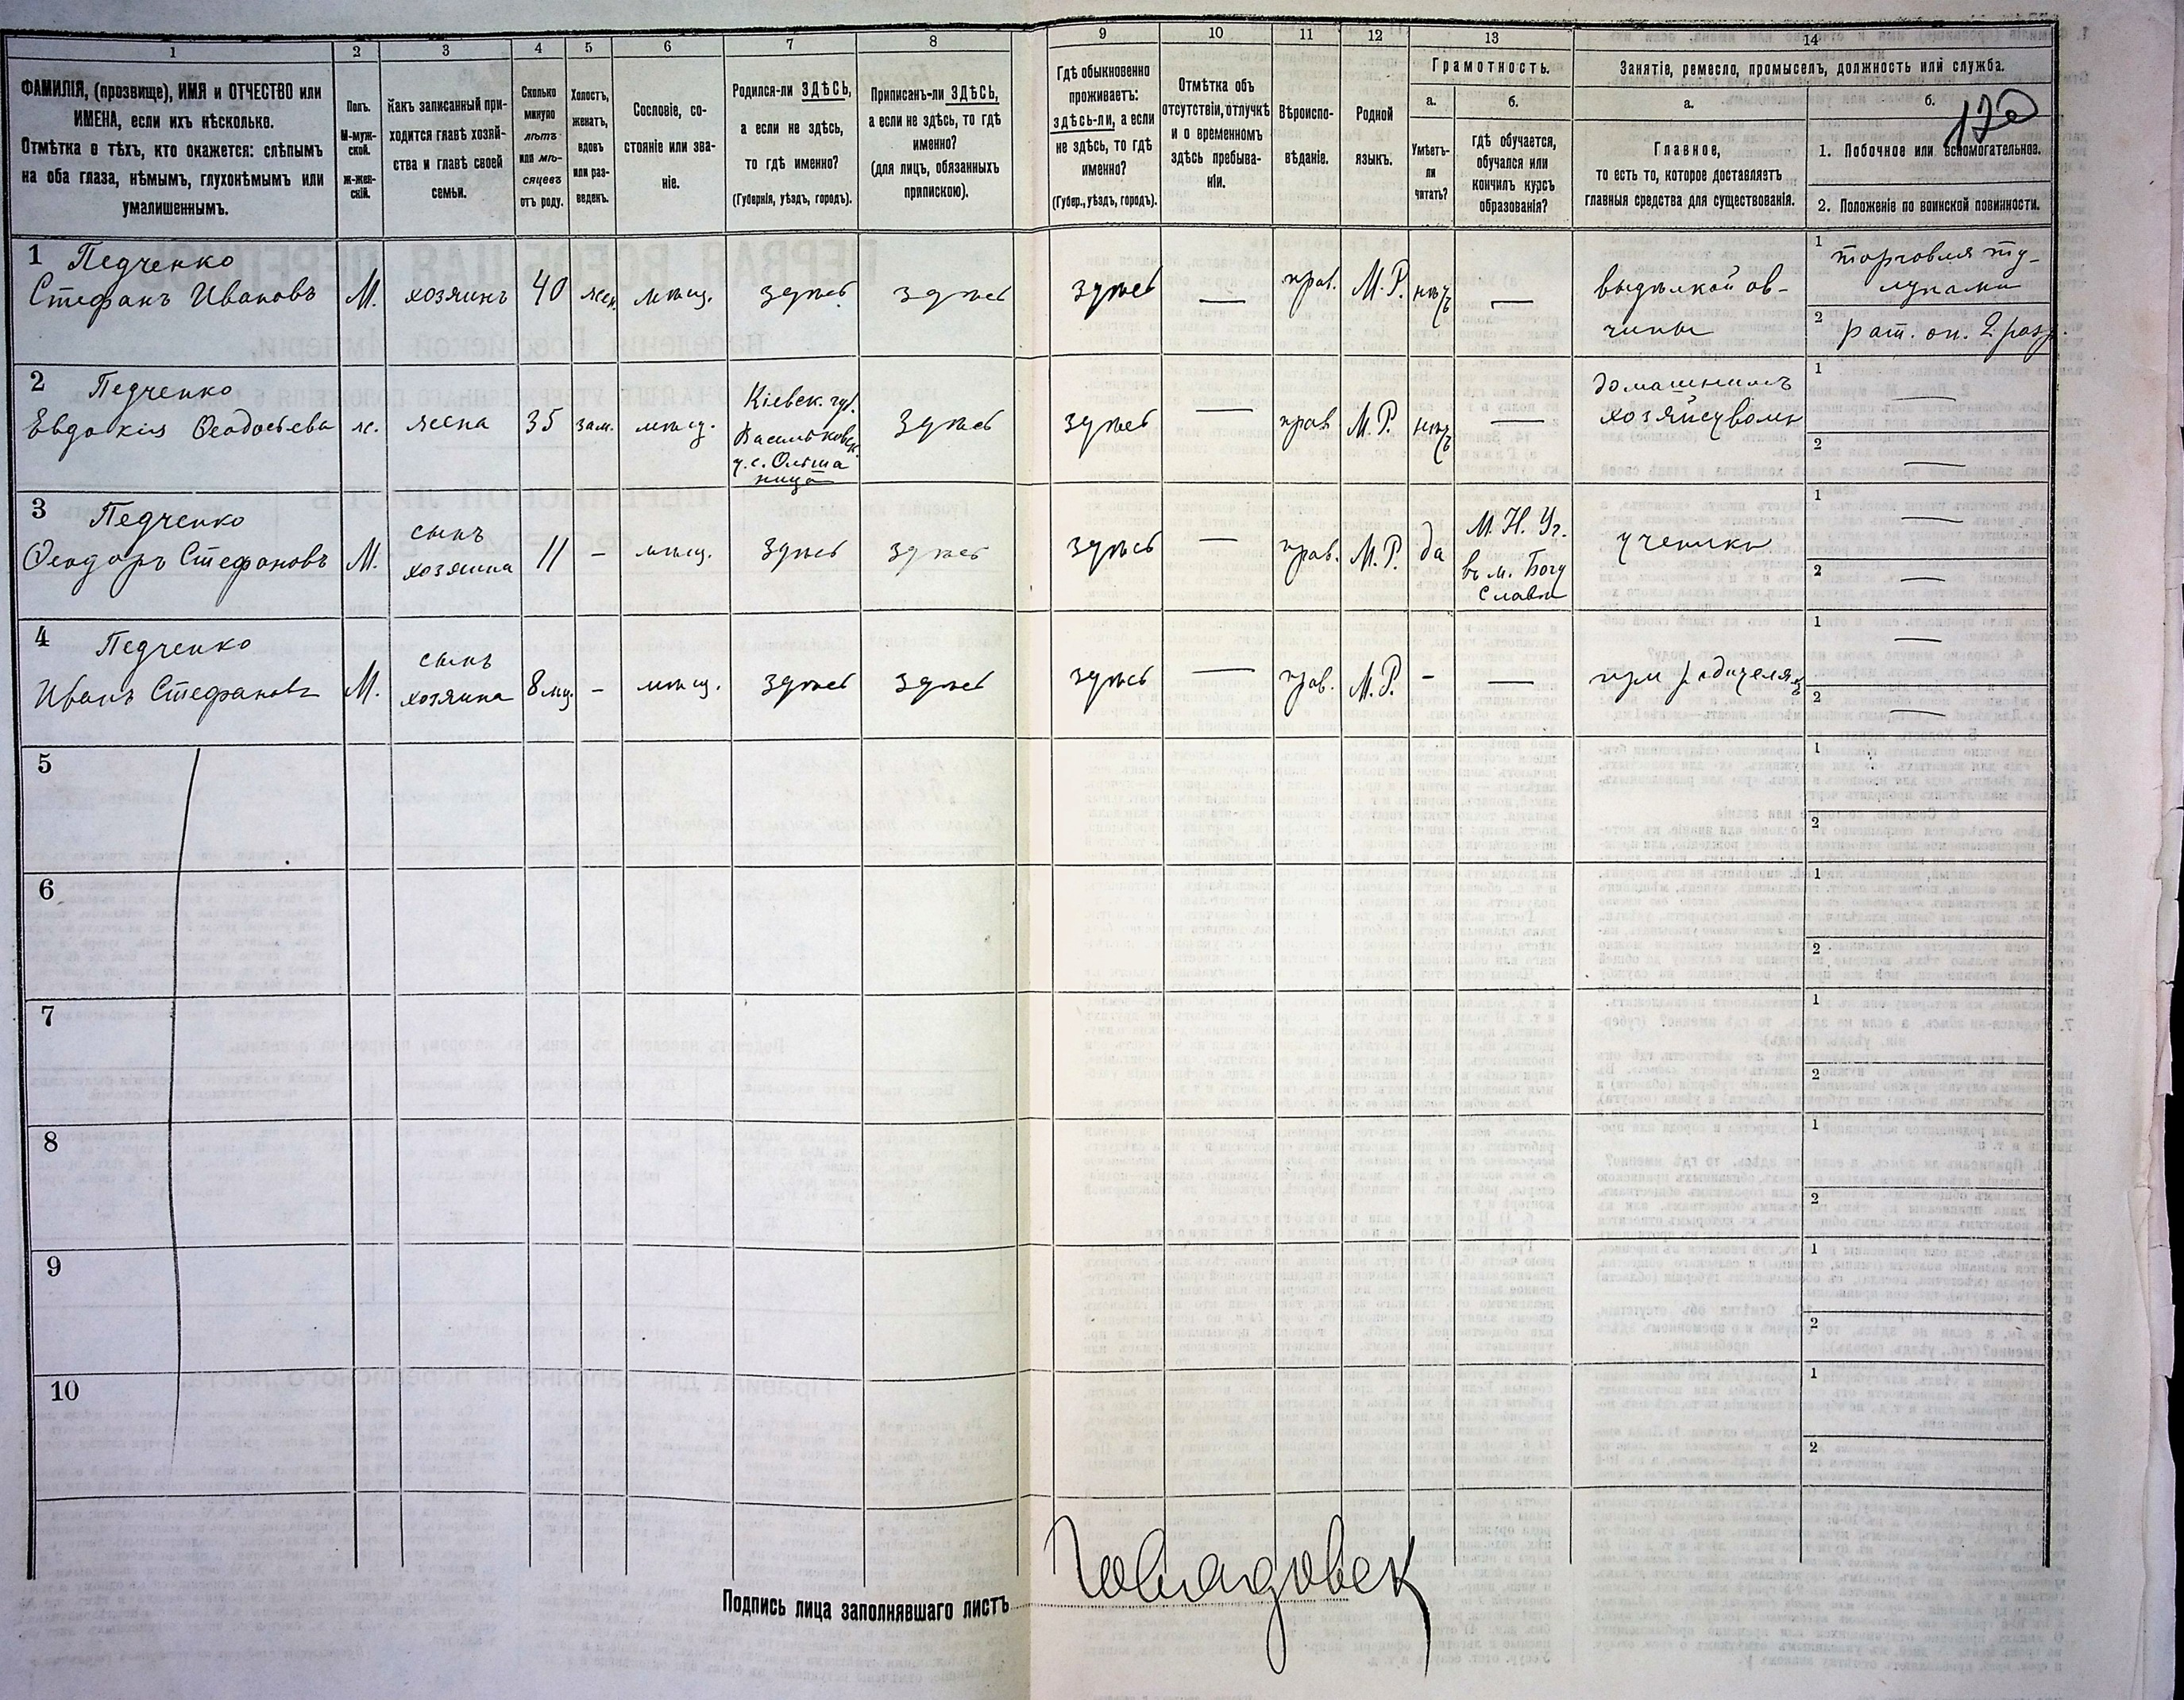 1
2
3
4
5
6
7
8
9
10
11
12
13
14
ФАМИЛІЯ, (прозвище), ИМЯ и ОТЧЕСТВО или
ИМЕНА, если ихъ нѣсколько.
Отмѣтка о тѣхъ, кто окажется: слѣпымъ
на оба глаза, нѣмымъ, глухонѣмымъ или
умалишеннымъ.
Полъ.
М-муж-
ской.
ж-жен-
скій.
Какъ записанный при-
ходится главѣ хозяй-
ства и главѣ своей
семьи.
Сколько
минуло
лѣтъ
или мѣ-
сяцевъ
отъ роду.
Холостъ,
женатъ,
вдовъ
или раз-
веденъ.
Сословіе, со-
стояніе или зва-
ніе.
Родился-ли ЗДѢСЬ,
а если не здѣсь,
то гдѣ именно?
(Губернія, уѣздъ, городъ).
Приписанъ-ли ЗДѢСЬ,
а если не здѣсь, то гдѣ
именно?
(для лицъ, обязанныхъ
припискою).
Гдѣ обыкновенно
проживаетъ:
здѣсь-ли, а если
не здѣсь, то гдѣ
именно?
(Губер., уѣздъ, городъ).
Отмѣтка объ
отсутствіи, отлучкѣ
и о временномъ
здѣсь пребыва-
ніи.
Вѣроиспо-
вѣданіе.
Родной
языкъ.
Грамотность.
а.
Умѣетъ-
ли
читать?
б.
гдѣ обучается,
обучался или
кончилъ курсъ
образованія?
Занятіе, ремесло, промыселъ, должность или служба.
а.
Главное,
то есть то, которое доставляетъ
главныя средства для существованія.
б.
120
1. Побочное или вспомогательное.
2. Положеніе по воинской повинности.
1 Педченко
Стефанъ Ивановъ
М.
хозяинъ
40
жен.
мѣщ.
здѣсь
здѣсь
здѣсь
—
прав.
М. Р.
нѣтъ
—
выдѣлкой ов-
чины
1 торговля ту-
лупами
2 рат. оп. 2 разр.
2 Педченко
Евдокія Ѳеодосьева
ж.
жена
35
зам.
мѣщ.
Кіевск. губ.
Васильковск.
у. с. Ольша
ница
здѣсь
здѣсь
—
прав
М. Р.
нѣтъ
—
домашнимъ
хозяйствомъ
1 —
2 —
3 Педченко
Ѳеодоръ Стефановъ
М.
сынъ
хозяина
11
-
мѣщ.
здѣсь
здѣсь
здѣсь
—
прав.
М. Р.
да
М. Н. Уч.
въ м. Богу
славѣ
ученикъ
1 —
2 —
4 Педченко
Иванъ Стефановъ
М.
сынъ
хозяина
8 мц.
-
мѣщ.
здѣсь
здѣсь
здѣсь
—
прав.
М. Р.
-
—
при родителяхъ
1 —
2 —
5
1
2
6
1
2
7
1
2
8
1
2
9
1
2
10
1
2
Подпись лица заполнявшаго листъ